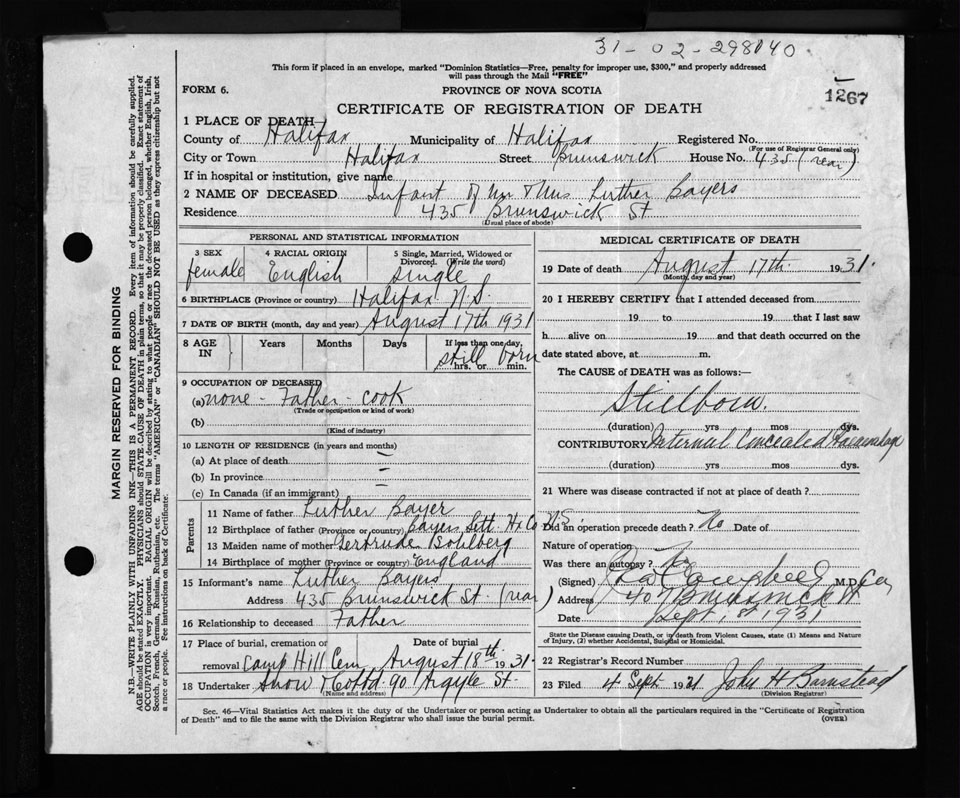 31-02-298040
This form if placed in an envelope, marked "Dominion Statistics—Free, penalty for improper use, $300," and properly addressed
will pass through the Mail "FREE"
1267
FORM 6.
PROVINCE OF NOVA SCOTIA
CERTIFICATE OF REGISTRATION OF DEATH
1 PLACE OF DEATH—
County of Halifax Municipality of Halifax Registered No.
(For use of Registrar General only)
City or Town Halifax Street Brunswick House No. 435 (rear)
If in hospital or institution, give name
2 NAME OF DECEASED Infant of Mr & Mrs Luther Bayers
Residence 435 Brunswick St
(Usual place of abode)
PERSONAL AND STATISTICAL INFORMATION
3 SEX female
4 RACIAL ORIGIN English
5 Single, Married, Widowed or Divorced. (Write the word) single
6 BIRTHPLACE (Province or country) Halifax N.S.
7 DATE OF BIRTH (month, day and year) August 17th 1931
8 AGE IN Years Months Days If less than one day, hrs. or min. still born
9 OCCUPATION OF DECEASED
(a) none - Father - cook
(Trade or occupation or kind of work)
(b)
(Kind of industry)
10 LENGTH OF RESIDENCE (in years and months)
(a) At place of death —
(b) In province —
(c) In Canada (if an immigrant) —
Parents
11 Name of father Luther Bayer
12 Birthplace of father (Province or country) Bayers Sett. Hx Co N.S.
13 Maiden name of mother Gertrude Bohlberg
14 Birthplace of mother (Province or country) England
15 Informant's name Luther Bayers
Address 435 Brunswick St. (rear)
16 Relationship to deceased Father
17 Place of burial, cremation or removal Camp Hill Cem. Date of burial August 18th 1931.
18 Undertaker Snow & Co Ltd. 90 Argyle St.
(Name and address)
MEDICAL CERTIFICATE OF DEATH
19 Date of death August 17th. 1931.
(Month, day and year)
20 I HEREBY CERTIFY that I attended deceased from
19 to 19 that I last saw
h alive on 19 and that death occurred on the
date stated above, at m.
The CAUSE of DEATH was as follows:—
Stillborn.
(duration) yrs mos dys.
CONTRIBUTORY Internal Concealed Haemorrhage
(duration) yrs mos dys.
21 Where was disease contracted if not at place of death?
Did an operation precede death? No Date of
Nature of operation
Was there an autopsy? No
(Signed) Campbell M.D.
Address 407 Brunswick St
Date Sept, 1931
State the Disease causing Death, or in death from Violent Causes, state (1) Means and Nature
of Injury, (2) whether Accidental, Suicidal or Homicidal.
22 Registrar's Record Number
23 Filed 4 Sept 1931 John H Barnstead
(Division Registrar)
Sec. 46—Vital Statistics Act makes it the duty of the Undertaker or person acting as Undertaker to obtain all the particulars required in the "Certificate of Registration
of Death" and to file the same with the Division Registrar who shall issue the burial permit.
(OVER)
MARGIN RESERVED FOR BINDING
N.B.—WRITE PLAINLY, WITH UNFADING INK—THIS IS A PERMANENT RECORD. Every item of information should be carefully supplied.
AGE should be stated EXACTLY. PHYSICIANS should STATE CAUSE OF DEATH in plain terms, so that it may be properly classified. Exact statement of
OCCUPATION is very important. RACIAL ORIGIN will be described by stating to what people or race the deceased person belonged, whether English, Irish,
Scotch, French, German, Russian, Ruthenian, etc. The terms "AMERICAN" or "CANADIAN" SHOULD NOT BE USED as they express citizenship but not
a race or people. See instructions on back of Certificate.